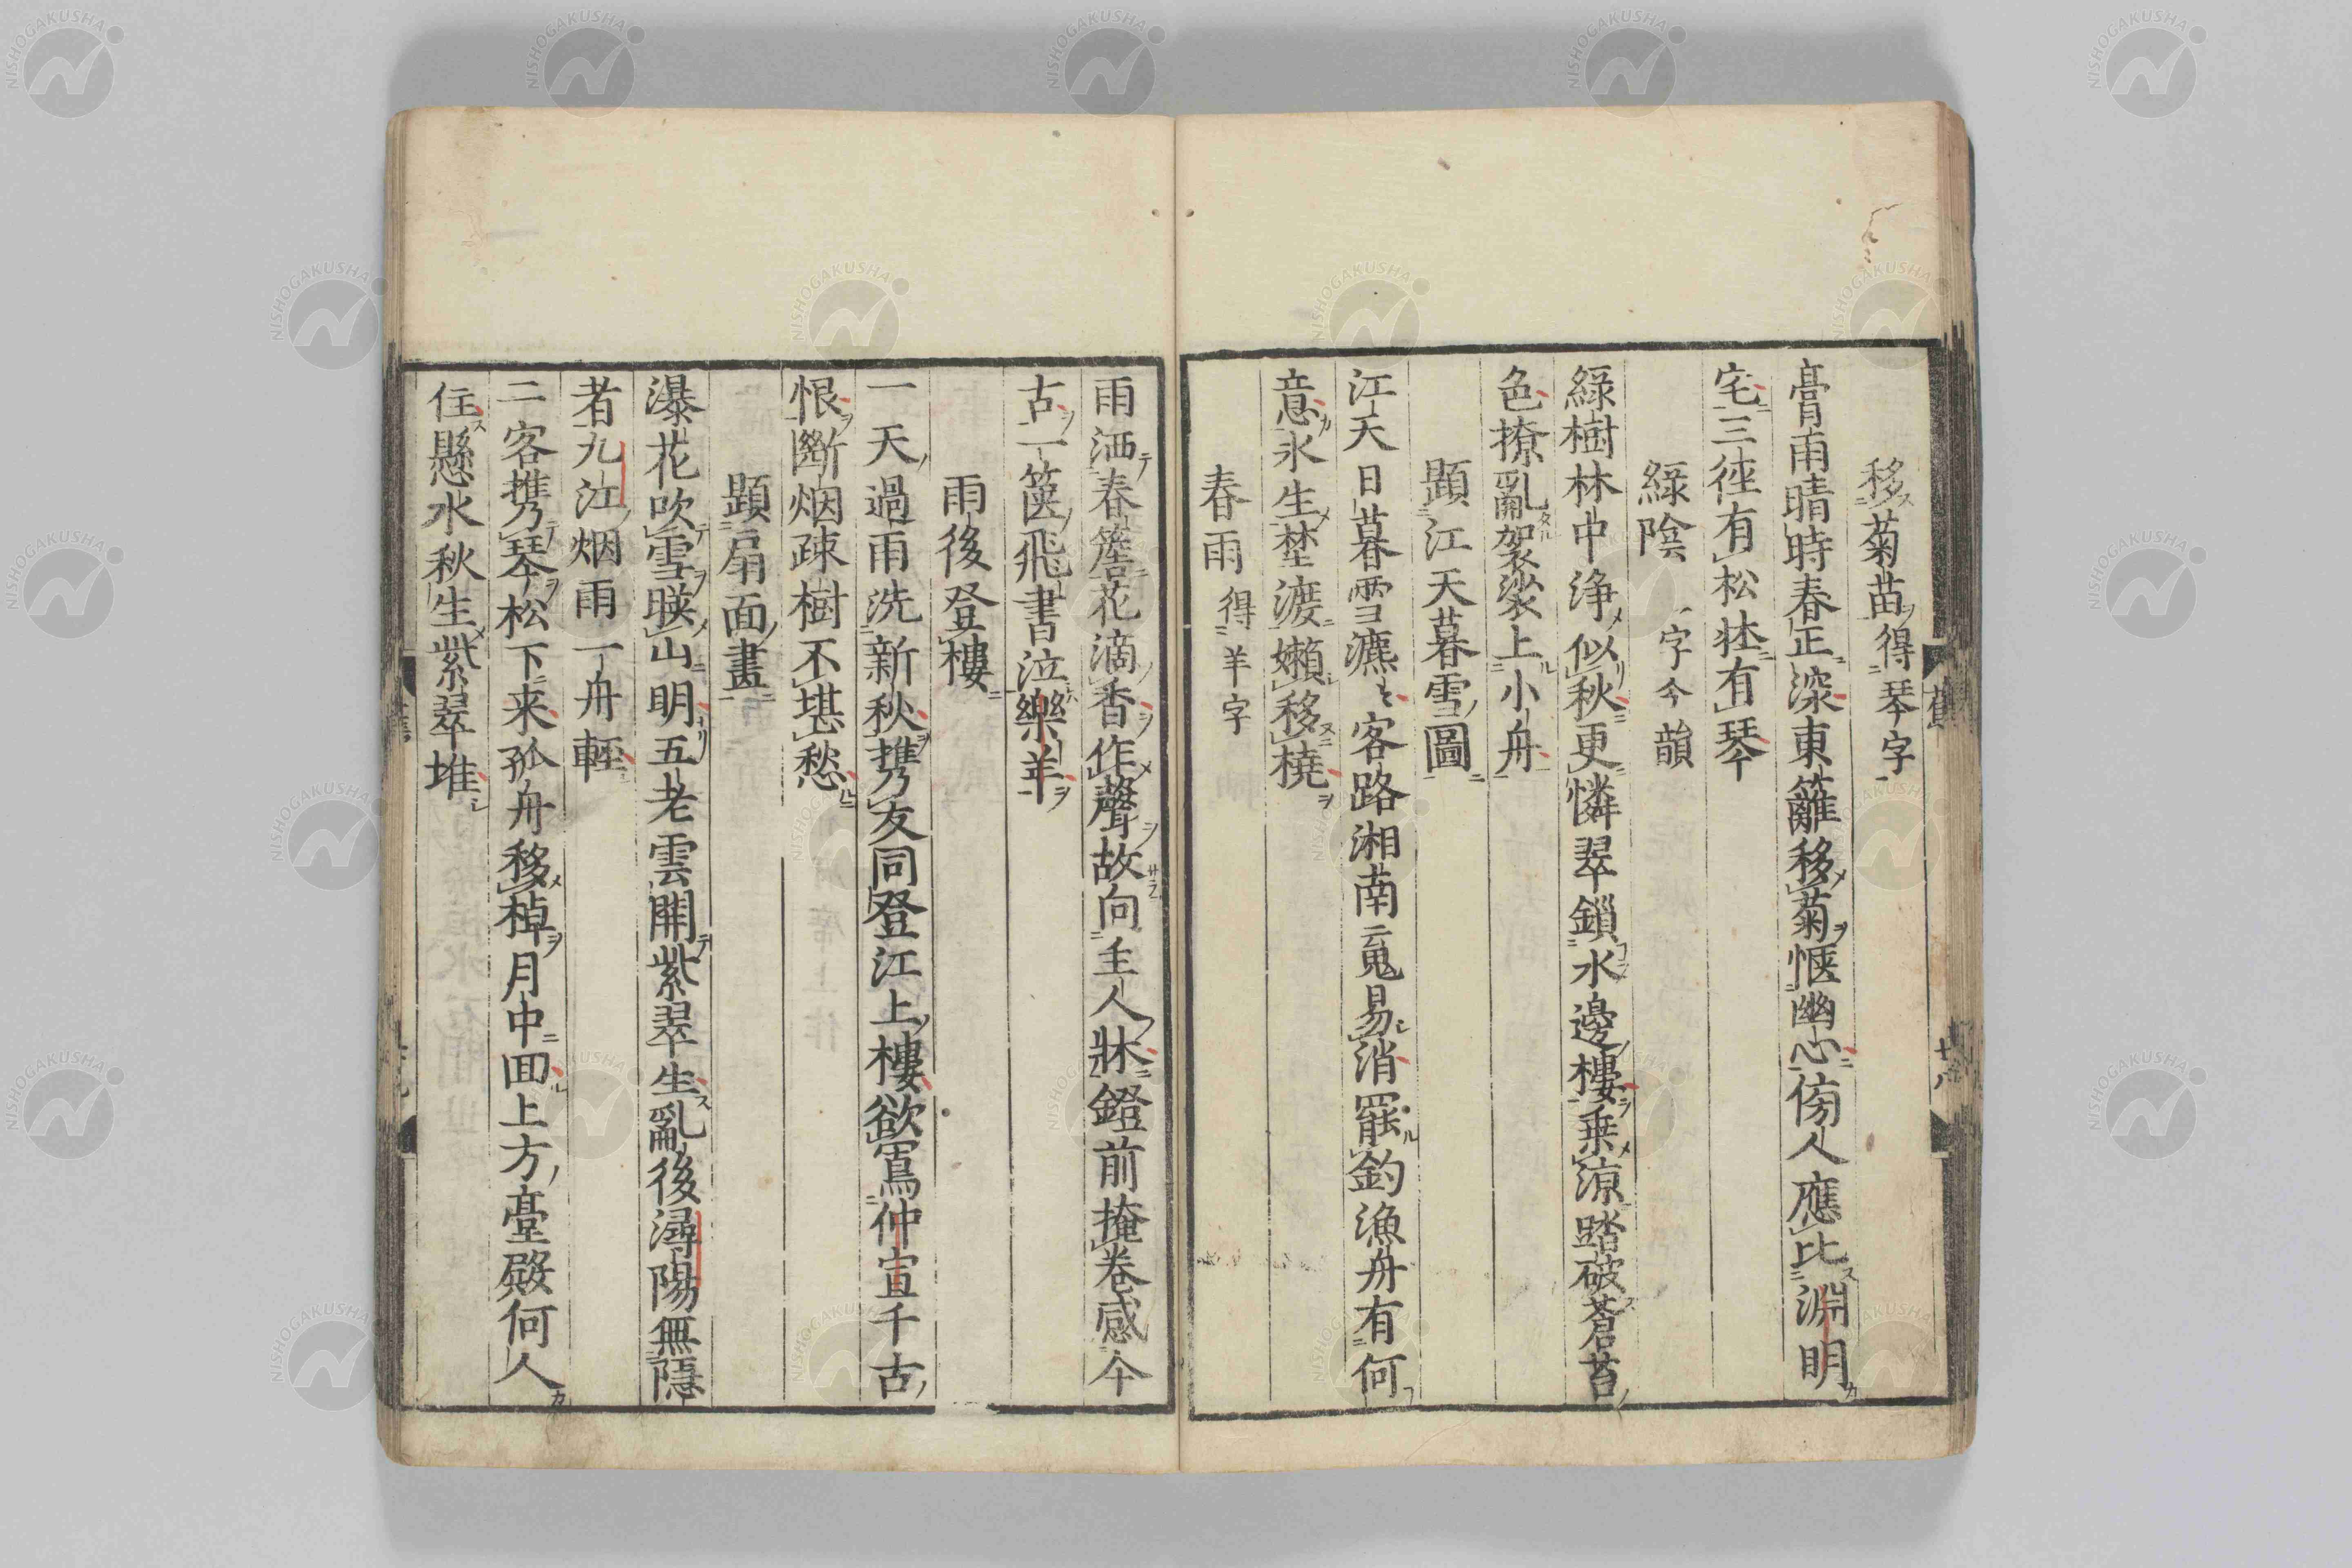 移菊苗得琴字
膏雨晴時春正深東籬移菊愜幽心傍人應比淵明
宅三徑有松牀有琴
綠陰字今韻
綠樹林中浄似秋更憐翠鎖水邊樓乗涼踏破蒼苔
色撩亂袈裟上小舟
題江天暮雪圖
江天日暮雪瀌〻客路湘南䰟易消罷釣漁舟有何
意氷生埜渡嬾移橈
春雨得羊字
雨洒春簷花滴香作聲故向主人牀鐙前掩卷感今
古一篋飛書泣樂羊
雨後登樓
一天過雨洗新秋携友同登江上樓欲寫仲宣千古
恨斷烟疎樹不堪愁
題扇面畫
瀑花吹雪暎山明五老雲開紫翠生亂後潯陽無隱
者九江烟雨一舟輕
二客携琴松下来孤舟移棹月中囬上方臺殿何人
住懸水秋生紫翠堆
十八
NISHOGAKUSHA